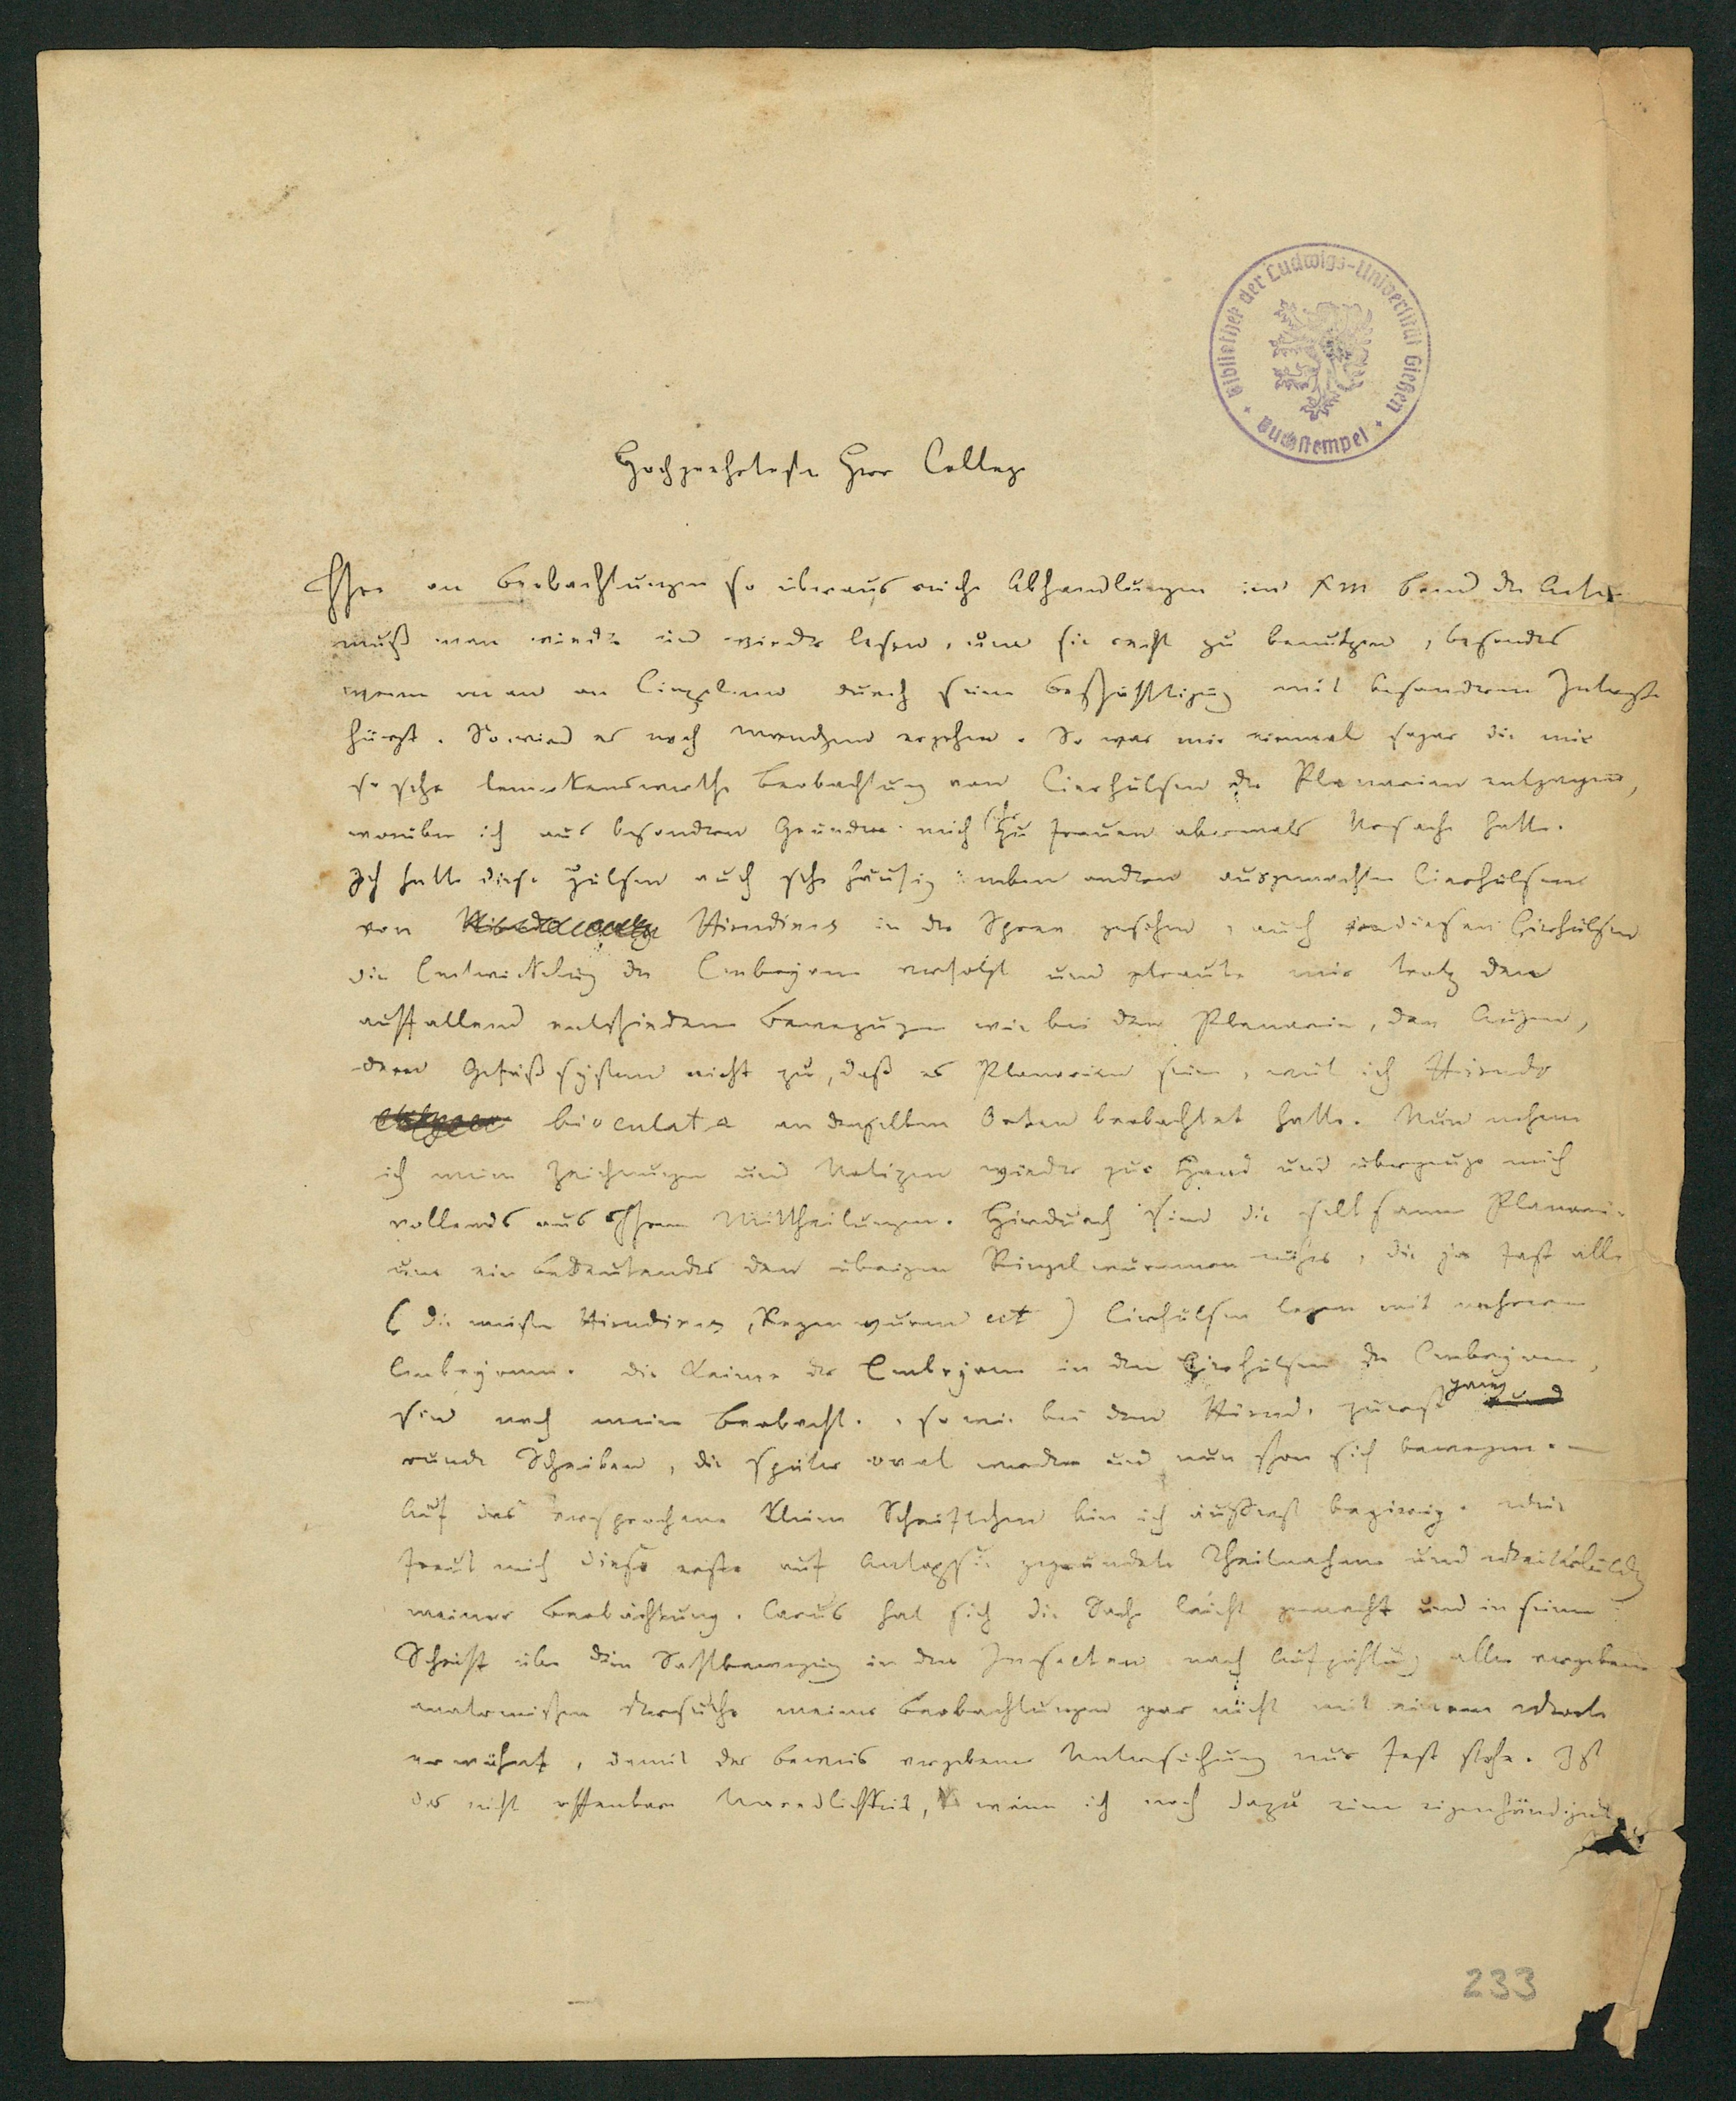 Bibliothek der Ludwigs-Universität Gießen
Buchstempel
Hochgeehrtester Herr College
Ihre an Beobachtungen so überaus reiche Abhandlungen im Xm Band der Acta
muß man wieder und wieder lesen, um sie recht zu benutzen, besonders
wenn man an Einzelnem durch seine Beschäftigung mit besonderem Interesse
hängt. So wird es noch manchem ergehen. So war mir einmal sogar die mir
so sehr bemerkenswerthe Beobachtung von Eierhülsen der Planarien entgangen,
worüber ich aus besondren Gründen mich sehr zu freuen abermals Ursache hatte.
Ich hatte diese Hülsen auch sehr häufig neben andren ausgemachten Eierhülsen
von Hirudines in der Spree gesehen, auch in diesen Eierhülsen
die Entwickelung der Embryonen verfolgt und traute mir trotz den
auffallend entschiedenen Bewegungen wie bei den Planarien, den Augen,
dem Gefäßsystem nicht zu, daß es Planarien seien, weil ich Hirudo
bioculata an denselben Orten beobachtet hatte. Nun nehme
ich meine Zeichnungen und Notizen wieder zur Hand und überzeuge mich
vollends aus Ihren Mittheilungen. Hierdurch sind die seltsamen Planarien
um ein bedeutendes den übrigen Ringelwürmern näher, die ja fast alle
(die meisten Hirudines, Regenwürmer ect) Eierhülsen legen mit mehreren
Embryonen. Die Keime der Embryonen in den Eierhülsen der Embryonen,
sind nach meinen Beobacht., so wie bei den Hirud. zuerst ganz
runde Scheiben, die später oval werden und nun schon sich bewegen.
Auf das versprochene kleine Schriftchen bin ich äußerst begierig. Mir
freut mich diese erste auf Autopsie gegründete Theilnahme und Weiterbildg
meiner Beobachtung. Carus hat sich die Sache leicht gemacht und in seiner
Schrift über die Saftbewegung in den Insecten nach Aufzählung aller vergebenen
anatomischen Versuche meiner Beobachtungen gar nicht mit einem Worte
erwähnt, damit der Beweis vergebener Untersuchung nur fest stehe. Ist
das nicht offenbare Unredlichkeit, wenn ich noch dazu einen eigenhändigen
233